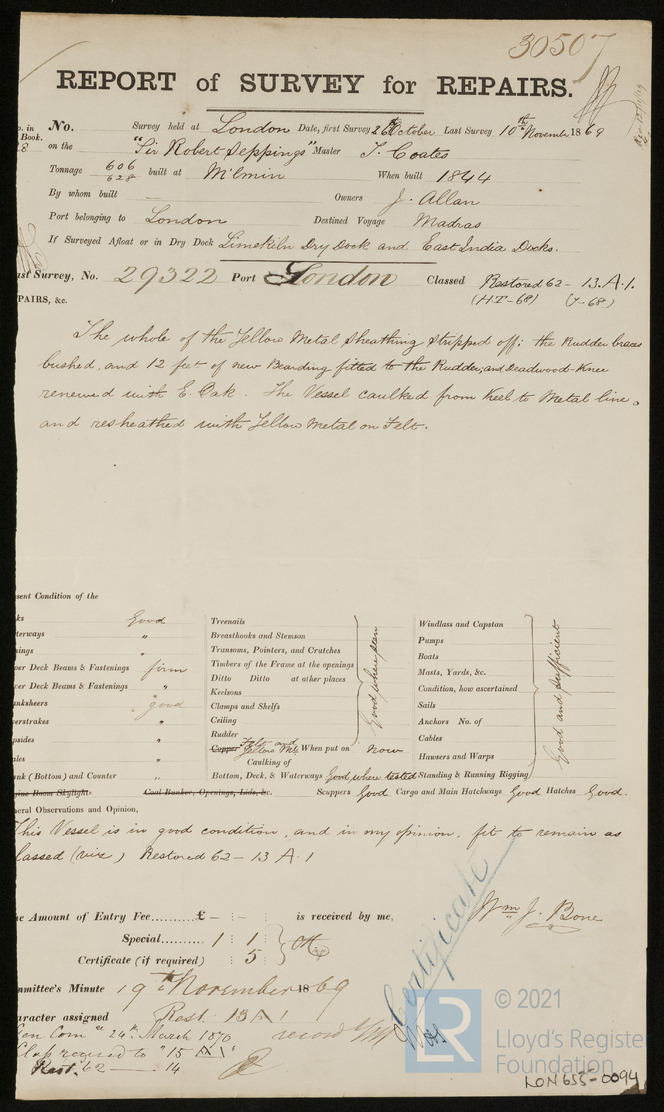 30507
REPORT of SURVEY for REPAIRS.
No. Survey held at London Date, first Survey 26th October Last Survey 10th November 1869
Book.
on the "Sir Robert Seppings" Master T. Coates
Tonnage 606 / 628 built at M'lmin When built 1844
By whom built — Owners J. Allan
Port belonging to London Destined Voyage Madras
If Surveyed Afloat or in Dry Dock Limekiln Dry Dock and East India Docks.
ast Survey, No. 29322 Port London Classed Restored 62 - 13. A. 1.
(HT-68) (7-68)
PAIRS, &c.
The whole of the Yellow Metal sheathing stripped off; the Rudder braces
bushed, and 12 feet of new Bearding fitted to the Rudder, and Deadwood-Knee
renewed with E. Oak. The Vessel caulked from Keel to Metal line,
and resheathed with Yellow Metal on Felt.
sent Condition of the
ks Good
terways "
nings "
per Deck Beams & Fastenings firm
wer Deck Beams & Fastenings "
anksheers good
verstrakes "
psides "
ales "
ank (Bottom) and Counter "
gine Room Skylight Coal Bunker, Openings, Lids, &c.
Treenails
Breasthooks and Stemson
Transoms, Pointers, and Crutches
Timbers of the Frame at the openings
Ditto Ditto at other places
Keelsons
Clamps and Shelfs
Ceiling
Rudder
Good where seen
Copper Felt and Yellow Mtl When put on Now
Caulking of
Bottom, Deck, & Waterways Good where tested
Windlass and Capstan
Pumps
Boats
Masts, Yards, &c.
Condition, how ascertained
Sails
Anchors No. of
Cables
Hawsers and Warps
Standing & Running Rigging
Good and sufficient
Scuppers Good Cargo and Main Hatchways Good Hatches Good.
neral Observations and Opinion,
This Vessel is in good condition, and in my opinion, fit to remain as
lassed (viz) Restored 62 - 13 A. 1
Wm J. Bone
he Amount of Entry Fee.........£ - : - : is received by me,
Special......... 1 : 1 :
Certificate (if required) : 5 :
Certificate
mmittee's Minute 19th November 1869
aracter assigned Rest. 13 A 1
Gen Com 24th March 1870 record
Class required to "15 A 1"
Rest. 62 — 14
LR
© 2021
Lloyd's Register
Foundation
LON655-0094